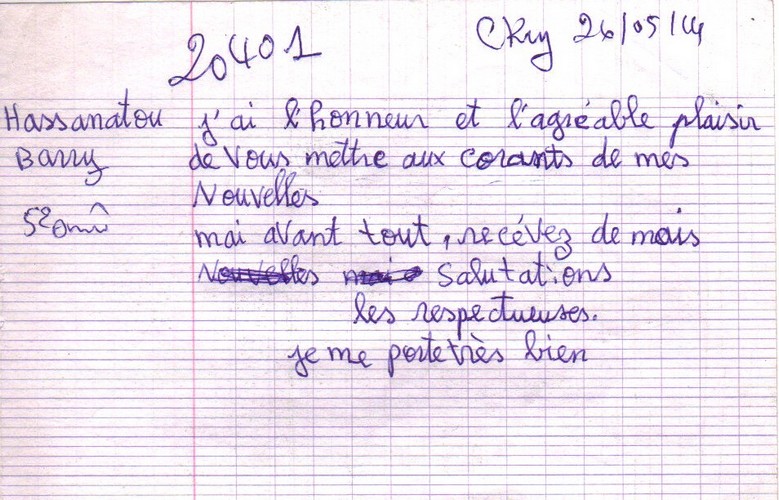 20401
Ckry 26/05/14
Hassanatou
Barry
j'ai l'honneur et l'agréable plaisir
de vous mettre aux corants de mes
Nouvelles
mai avant tout, recévez de mais
Nouvelles mais Salutations
les respectueuses.
je me porte très bien